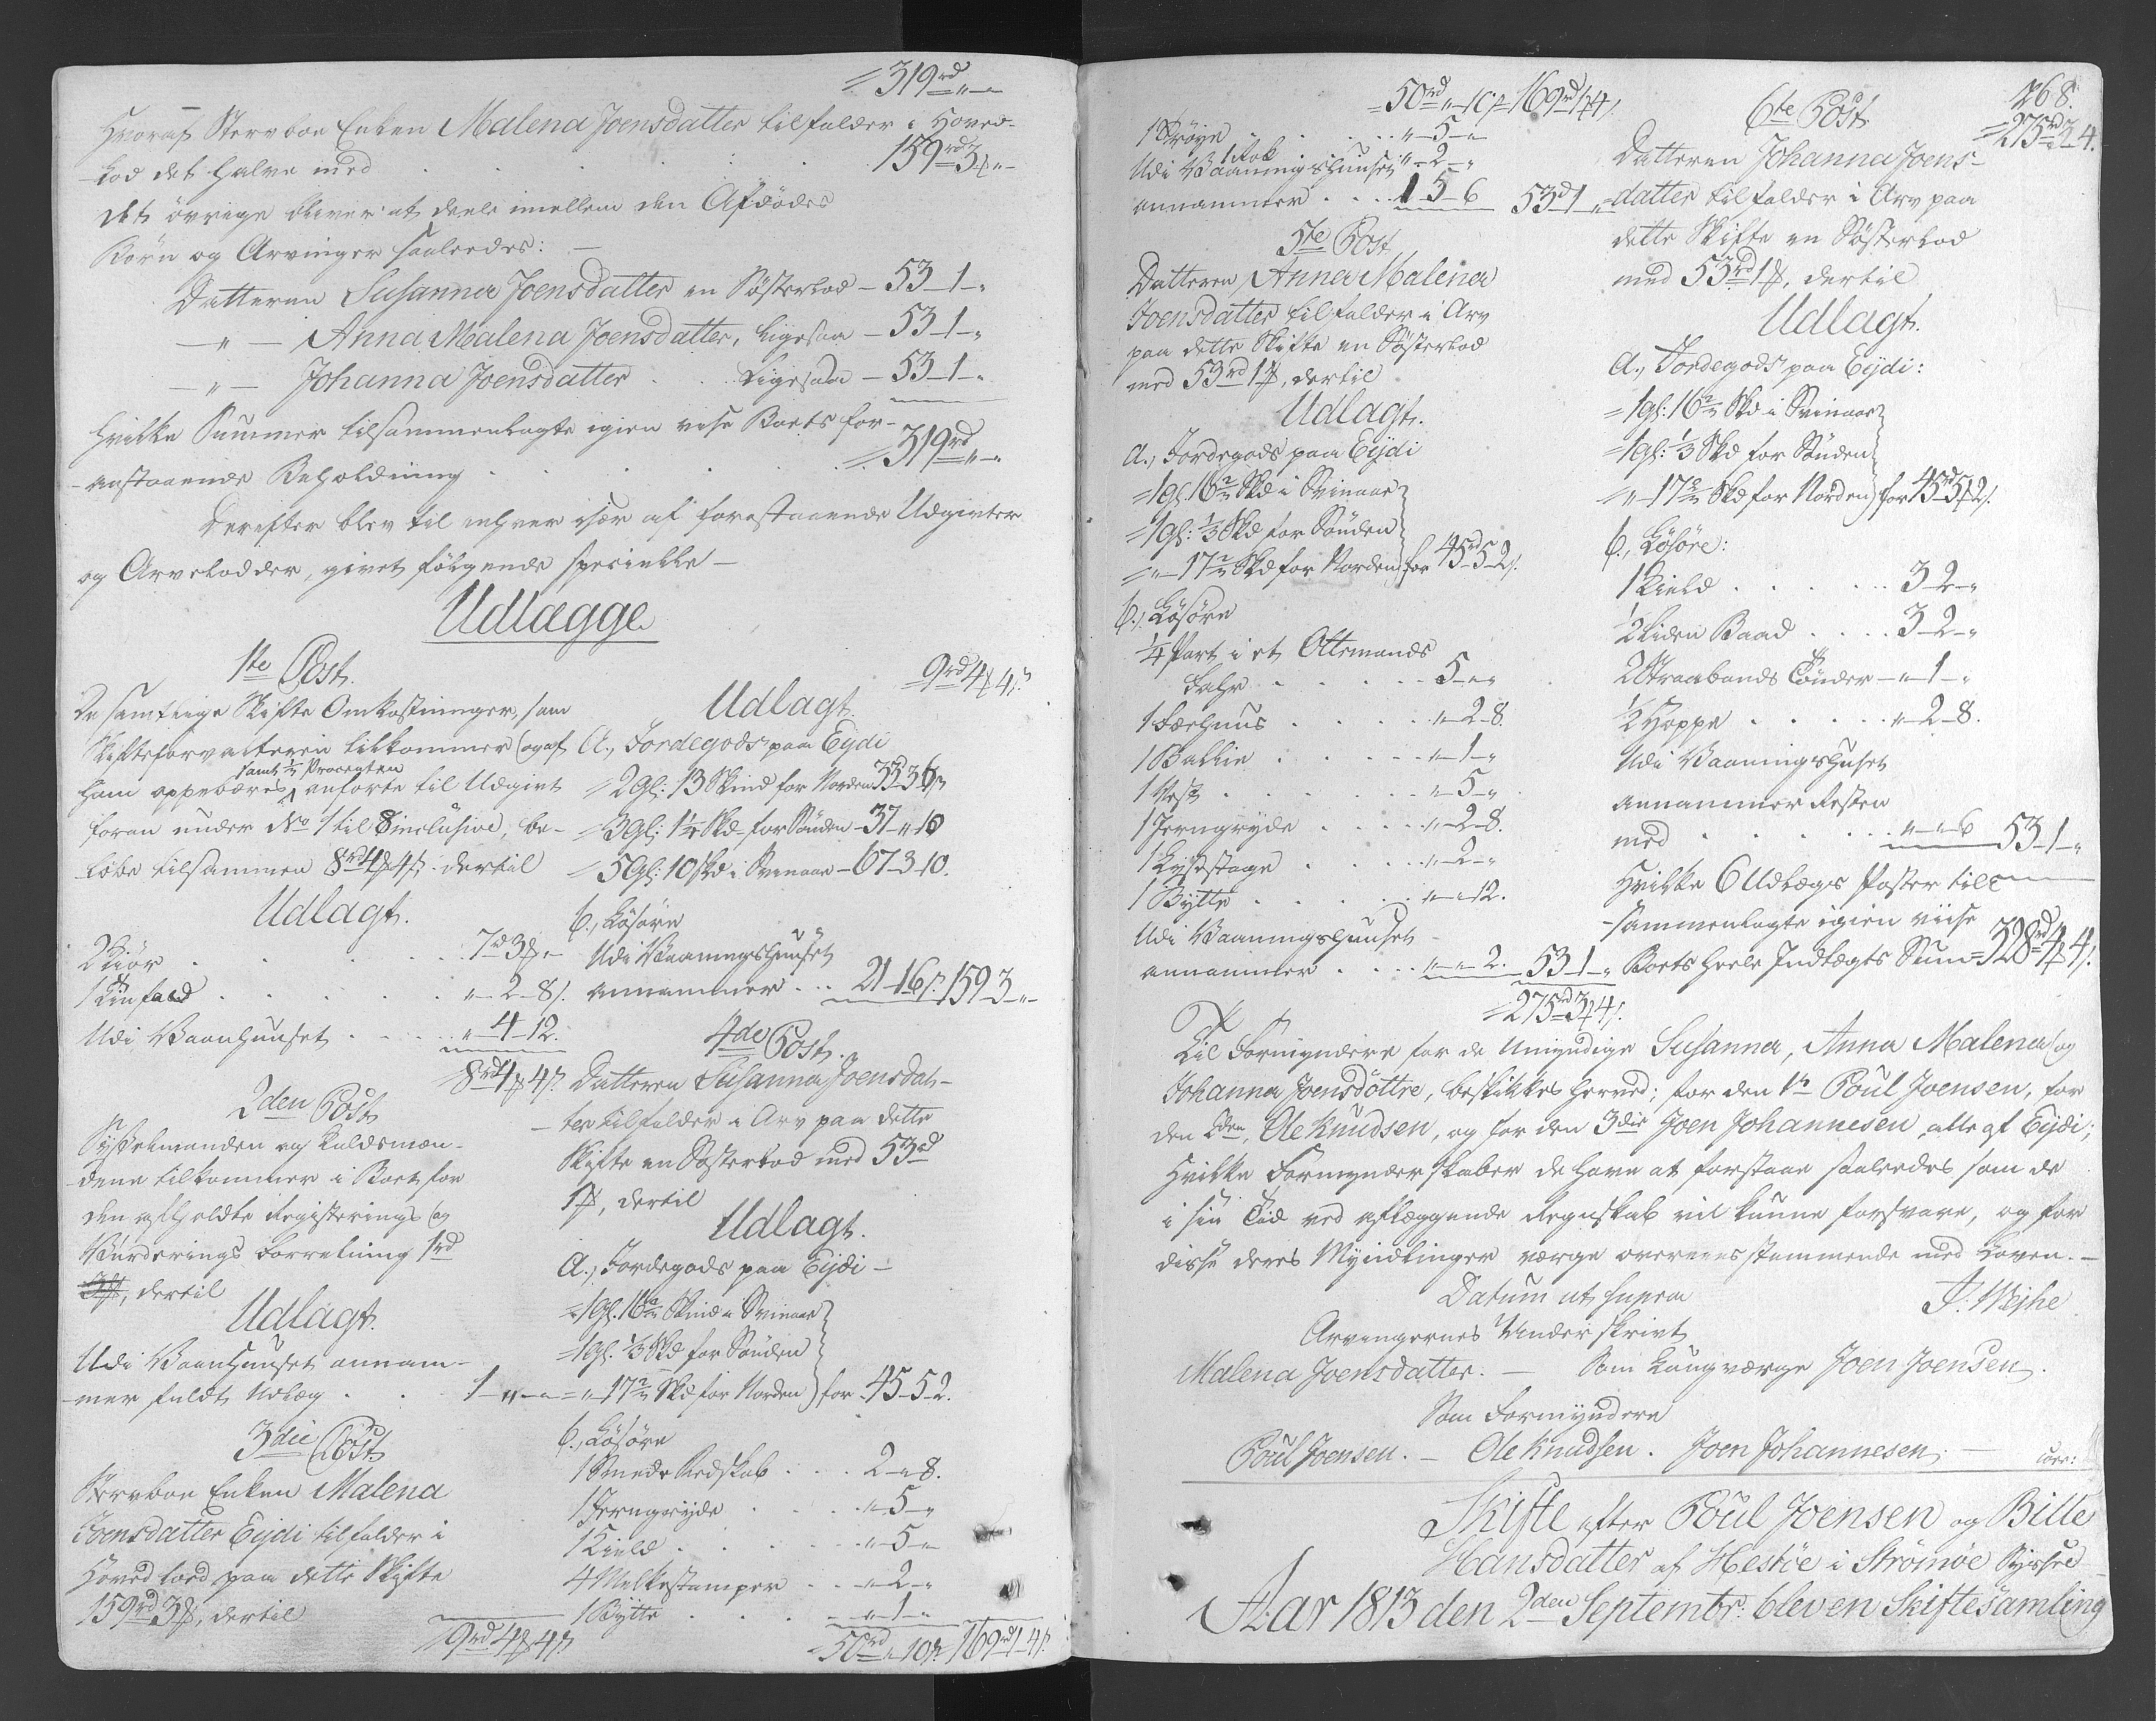 = 319rd „ „
Hvoraf Stervboe Enken Malena Joensdatter tilfalder i Hoved-
lod det halve med . . . 159rd 3ß „
det övrige bliver at deele imellem den Afdödes
Börn og Arvinger saaledes: —
Datteren Susanna Joensdatter en Sösterlod — 53 — 1 — „
— „ — Anna Malena Joensdatter, ligesaa — 53 — 1 — „
— „ — Johanna Joensdatter . . ligesaa — 53 — 1 — „
hvilke Summer tilsammenlagte igien vise Boets for-
anstaaende Beholdning . . . = 319rd „ „
Derefter blev til enhver især af forestaaende Udgivter
og Arvelodder, givet fölgende specielle —
Udlægge
1te Post.
De samtlige Skifte Omkostninger, som
Skifteforvalteren tilkommer (og af
samt ½ Procenten
ham oppebæres, anförte til Udgivt
foran under No 1 til 8 inclusive, be-
löbe tilsammen 8rd 4ß 4s. dertil
Udlagt.
2 Kiör . . . 7rd 3ß „
1 . . . „ — 2 — 8s.
Udi Vaanhuuset . . . „ — 4 — 12.
8rd 4ß 4s.
2den Post
Sysselmanden og Lauldsmæn-
dene tilkommer i Boet for
den afholdte Registerings (og
Vurderings Forretning 1rd
, dertil
Udlagt.
Udi Vaanhuuset annam-
mer fuldt Udlæg . . 1 — „ — „
3die Post
Stervboe Enken Malena
Joensdatter Eijdi tilfalder i
Hoved lod paa dette Skifte
159rd 3ß, dertil
9rd 4ß 4s.
9rd 4ß 4s.
Udlagt.
a., Jordegods paa Eijdi
= 2 gl: 13 Skind for Norden 53 3 6
= 3 gl: 1¼ Skd for Sönden — 37 — „ 10
= 5 gl: 10 Skd i Svinaae — 67 — 3 — 10.
b., Lösöre
Udi Vaaningshuuset
annammer . . 21 — 1 6s. 159 3 „
4de Post.
Datteren Susanna Joensdat-
ter tilfalder i Arv paa dette
Skifte en Sösterlod med 53rd
1ß, dertil
Udlagt.
a., Jordegods paa Eijdi —
= 1 gl. 16 Skind i Svinaae
= 1 gl. ⅓ Skd for Sönden
= „ — 17 Skd for Norden } for 45 — 5 — 2.
b., Lösöre
1 Smede Redskab . . . 2 — „ 8.
1 Jerngryde . . . „ — 5 — „
1 Kield . . . „ — 5 — „
4 Melkestamper . . „ — 2 — „
1 Bytte . . . „ — 1 — „
= 50rd „ 10s. 169rd 1 — 4s.
= 50rd „ 10s. = 169rd 1 4s.
1 Tröye . . . „ — 5 — „
1 Rok . . „ — 2 — „
Udi Vaaningshuuset
annammer . . . 1 5 6 53rd 1 „
5te Post
Datteren Anna Malena
Joensdatter tilfalder i Arv
paa dette Skifte en Sösterlod
med 53rd 1ß, dertil
Udlagt.
a., Jordegods paa Eijdi
= 1 gl. 16 Skd i Svinaae
= 1 gl: ⅓ Skd for Sönden
= „ — 17 Skd for Norden } for 45rd 5 — 2s.
b., Lösöre
¼ Part i et Ottemands
Fahr . . . 5 — „ „
1 Færhuus . . . „ — 2 — 8.
1 Ballie . . . „ — 1 — „
1 Vest . . . „ — 5 — „
1 Jerngryde . . . „ — 2 — 8.
1 Lysestage . . . „ — 2 — „
1 Bytte . . . „ — „ 12.
Udi Vaaningshuuset
annammer . . . „ — „ 2. 53 — 1 — „
= 275rd 3ß 4s.
268.
6te Post
= 275rd 3 4.
Datteren Johanna Joens-
datter tilfalder i Arv paa
dette Skifte en Sösterlod
med 53rd 1ß, dertil
Udlagt.
a., Jordegods paa Eijdi:
= 1 gl: 16 Skd i Svinaae
= 1 gl: ⅓ Skd for Sönden
= „ — 17 Skd for Norden } for 45rd 5ß 2s.
b., Lösöre:
1 Kield . . . 3 — 2 — „
½ Liden Baad . . . 3 — 2 — „
2 Straabands Tönder — „ 1 — „
½ Hoppe . . . „ — 2 — 8.
Udi Vaaningshuset
annammer Resten
med . . . „ — „ 6 53 — 1 — „
Hvilke 6 Udlægs Poster till
sammenlagte igien viise
Boets heele Indtægts Sum = 328rd 4ß 4s.
Til Formyndere for de Umyndige Susanna, Anna Malena (og
Johanna Joensdöttre, beskikkes herved; for den 1te Poul Joensen, for
den 2den, Ole Knudsen, og for den 3die Joen Johannesen, alle af Eijdi;
hvilke Formynderskaber de have at forestaae saaledes som de
i sin Tid ved aflæggende Regnskab vil kunne forsvare, og for
disse deres Myndlinger værge overeensstemmende med Loven. —
Datum ut supra
J. Weyhe
Arvingernes Underskrivt
Malena Joensdatter. — Som Laugværge Joen Joensen.
Som Formyndere
Poul Joensen. — Ole Knudsen. Joen Johannesen.
Corr:
Skifte efter Poul Joensen og Bille
Hansdatter af Hestöe i Strömöe Syssel
Aar 1813 den 2den Septembr: blev en Skiftesamling